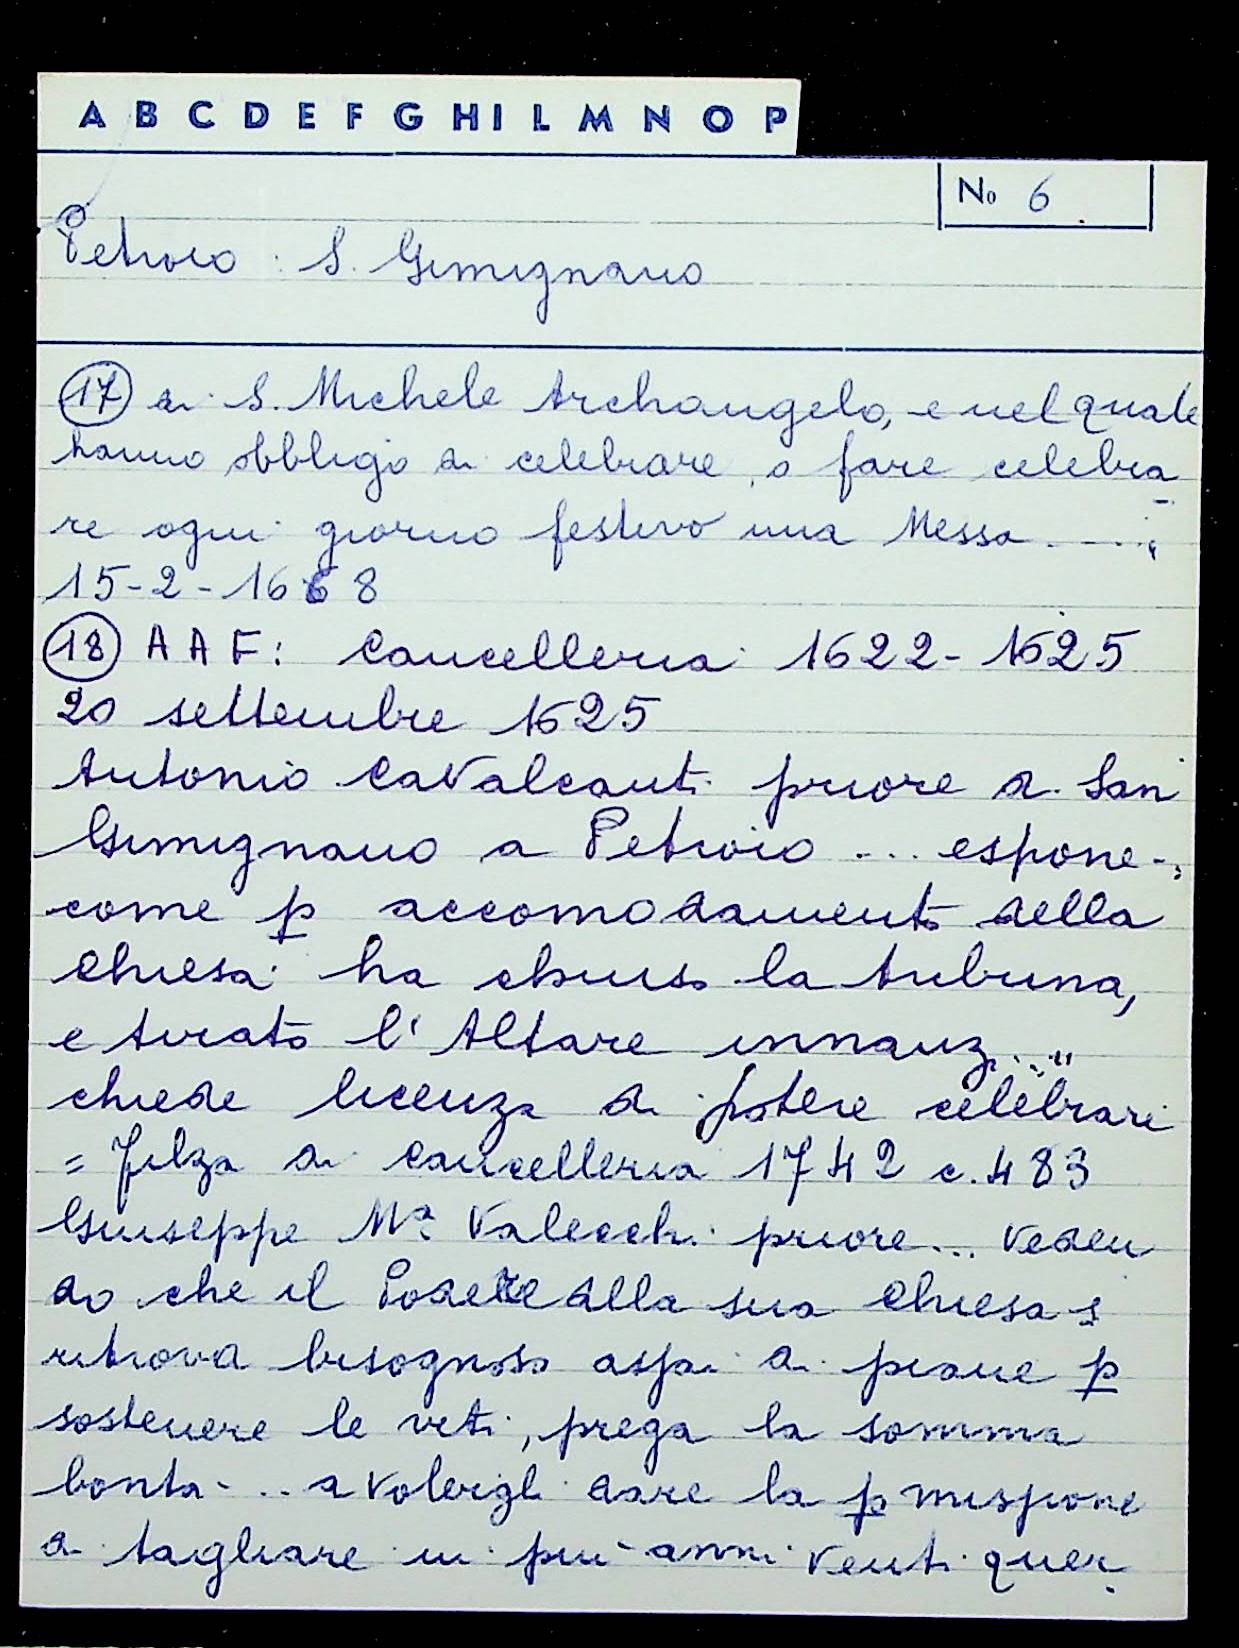 A B C D E F G H I L M N O P
No 6.
Petroio: S. Gimignano
(17) di S. Michele Archangelo, e nel quale
hanno obbligo di celebrare, o fare celebra
re ogni giorno festivo una Messa....;
15-2-1668
(18) A A F: Cancelleria 1622-1625
20 settembre 1625
Antonio Cavalcanti priore di San
Gimignano a Petroio ... espone-;
come p accomodamento della
Chiesa ha chiuso la tribuna,
e tirato l'Altare innanzi...."
chiede licenza di potere celebrare
= Filza di Cancelleria 1742 c. 483
Giuseppe Mª Valecchi priore... veden
do che il Podere della sua Chiesa si
ritrova bisognoso assai di piane p
sostenere le viti, prega la somma
bontà... a volergli dare la pmissione
di tagliare in più anni venti quer